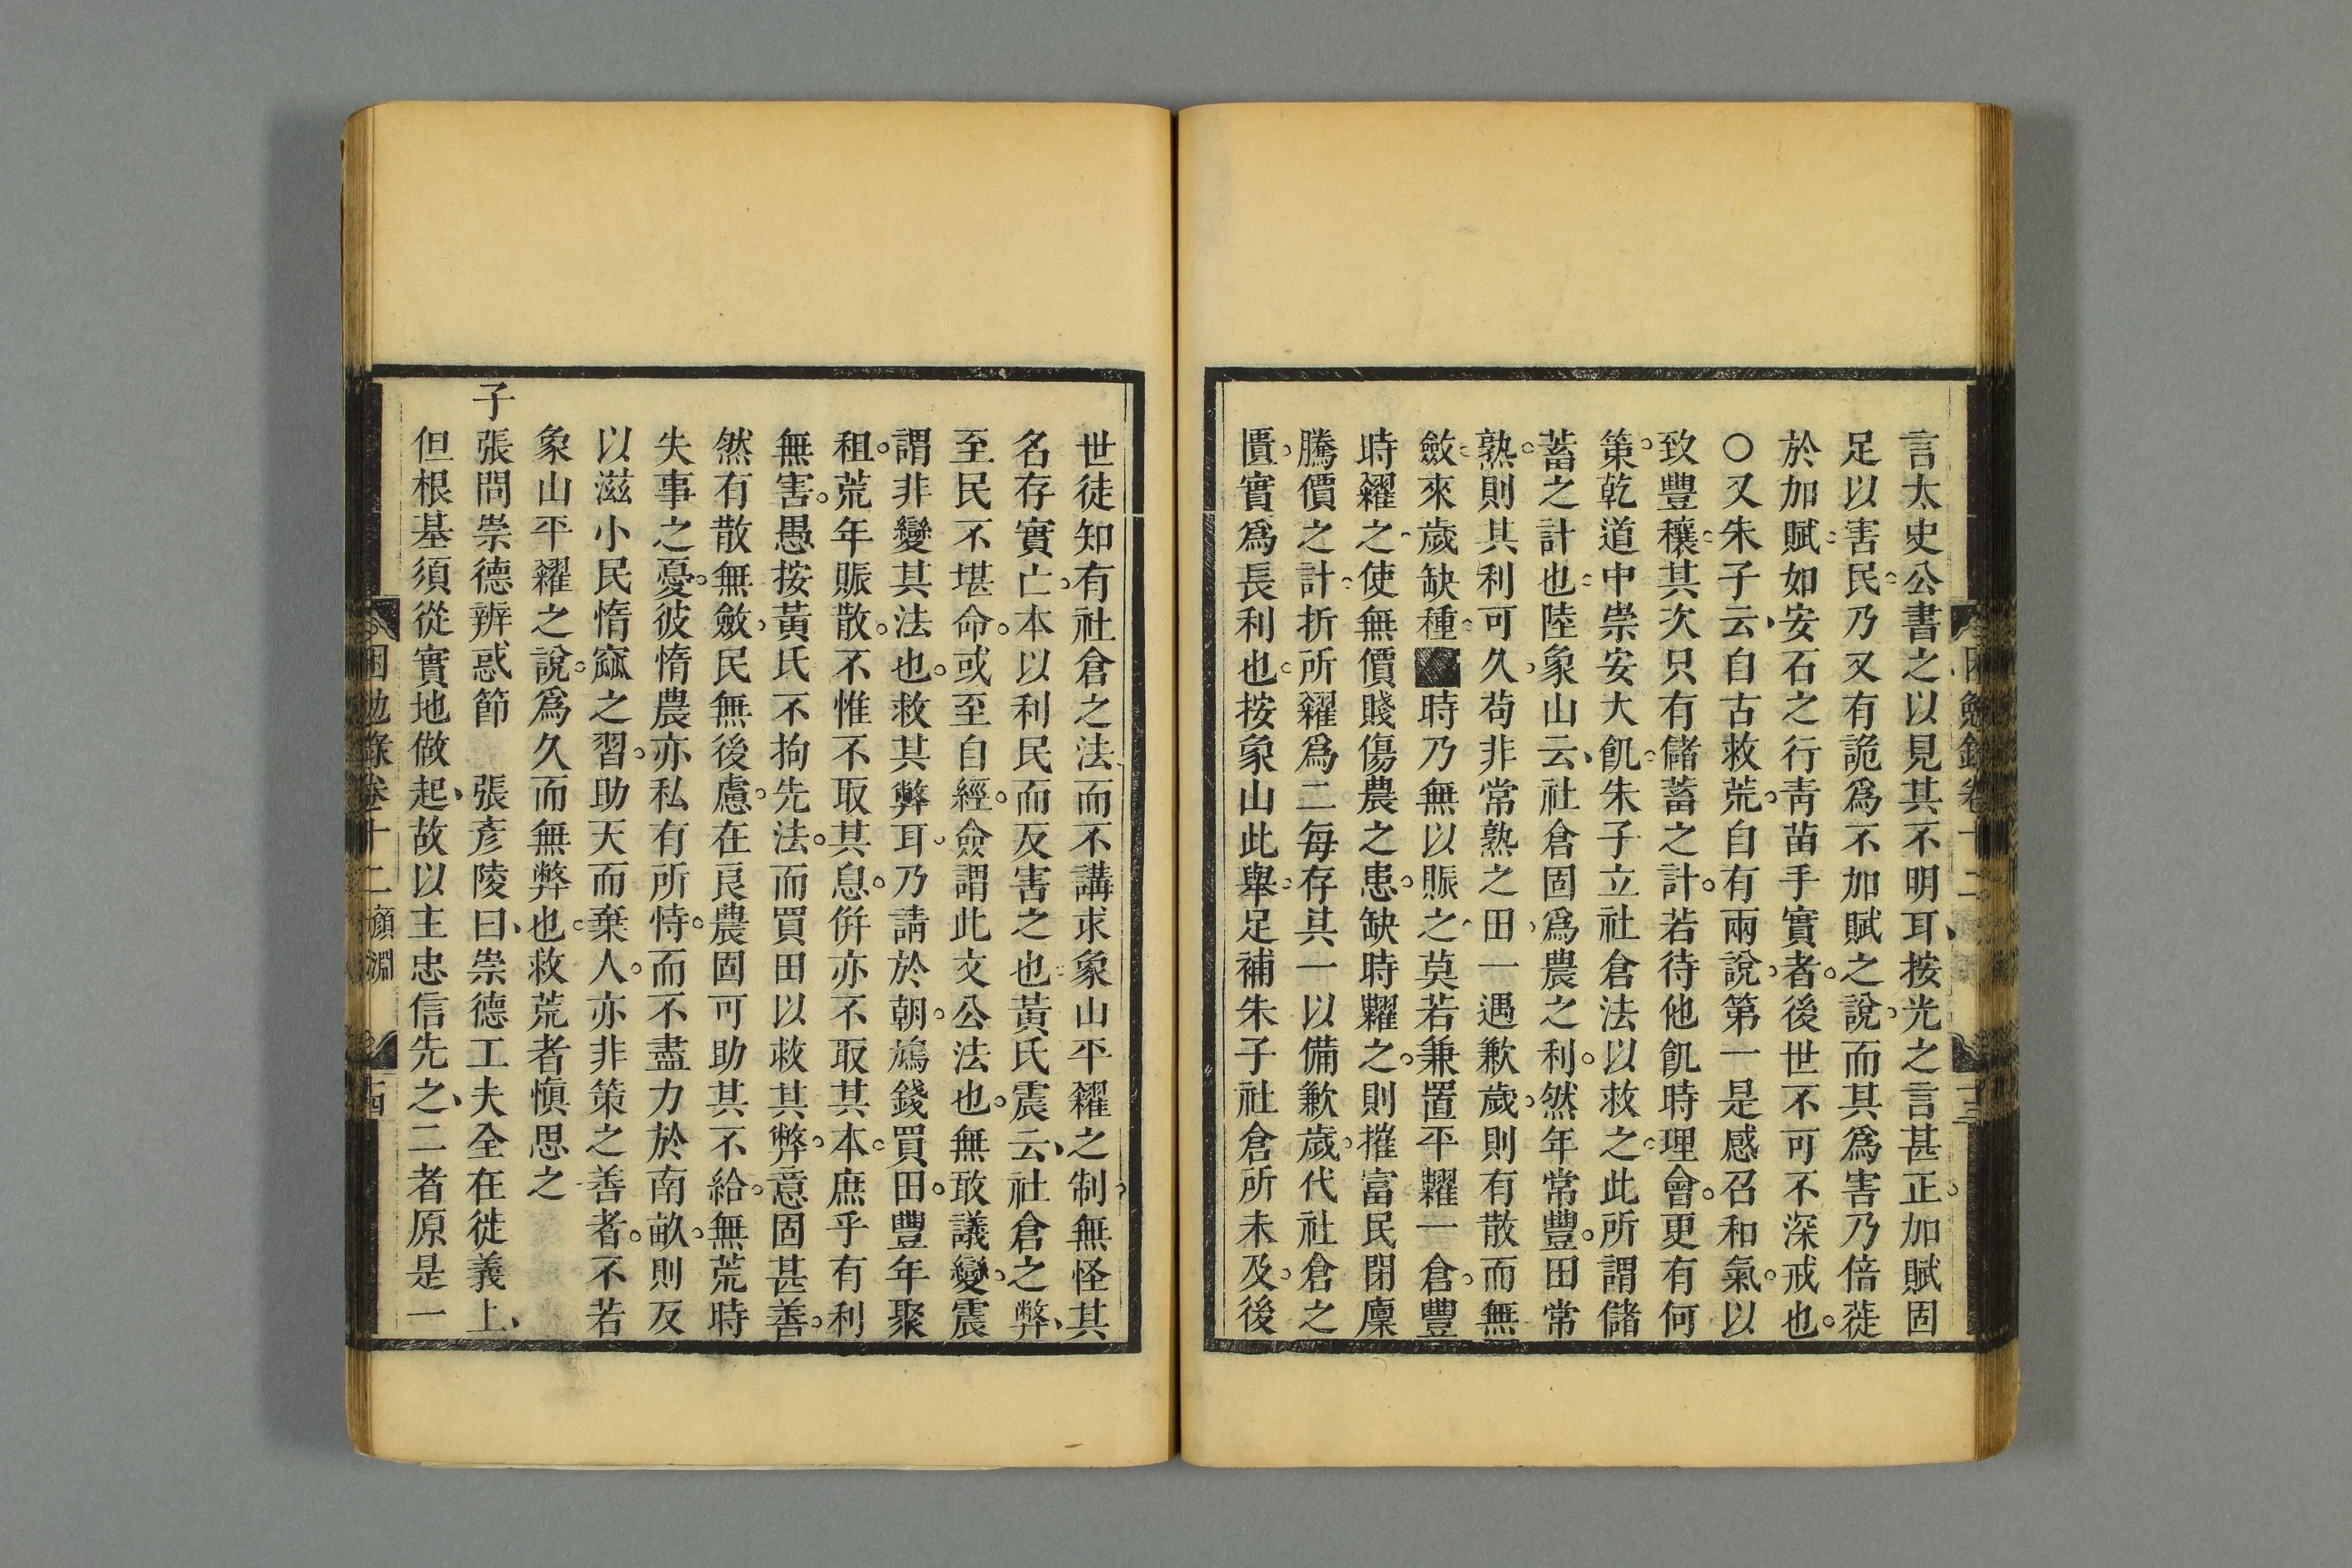 言太史公書之以見其不明耳按光之言甚正加賦固
足以害民乃又有詭爲不加賦之說而其爲害乃倍蓰
於加賦如安石之行青苗手實者後世不可不深戒也
○又朱子云自古救荒自有兩說第一是感召和氣以
致豐穰其次只有儲蓄之計若待他飢時理會更有何
策乾道中崇安大飢朱子立社倉法以救之此所謂儲
蓄之計也陸象山云社倉固爲農之利然年常豐田常
熟則其利可久苟非常熟之田一遇歉歲則有散而無
斂來歲缺種時乃無以賑之莫若兼置平糶一倉豐
時糴之使無價賤傷農之患缺時糶之則摧富民閉廩
騰價之計折所糴爲二每存其一以備歉歲代社倉之
匱實爲長利也按象山此舉足補朱子社倉所未及後
世徒知有社倉之法而不講求象山平糴之制無怪其
名存實亡本以利民而反害之也黃氏震云社倉之弊
至民不堪命或至自經僉謂此文公法也無敢議變震
謂非變其法也救其弊耳乃請於朝鳩錢買田豐年聚
租荒年賑散不惟不取其息倂亦不取其本庶乎有利
無害愚按黃氏不拘先法而買田以救其弊意固甚善
然有散無斂民無後慮在良農固可助其不給無荒時
失事之憂彼惰農亦私有所恃而不盡力於南畝則反
以滋小民惰窳之習助天而棄人亦非策之善者不若
象山平糴之說爲久而無弊也救荒者愼思之
子張問崇德辨惑節　張彥陵曰崇德工夫全在徙義上
但根基須從實地做起故以主忠信先之二者原是一
困勉錄卷十二　顏淵　十四